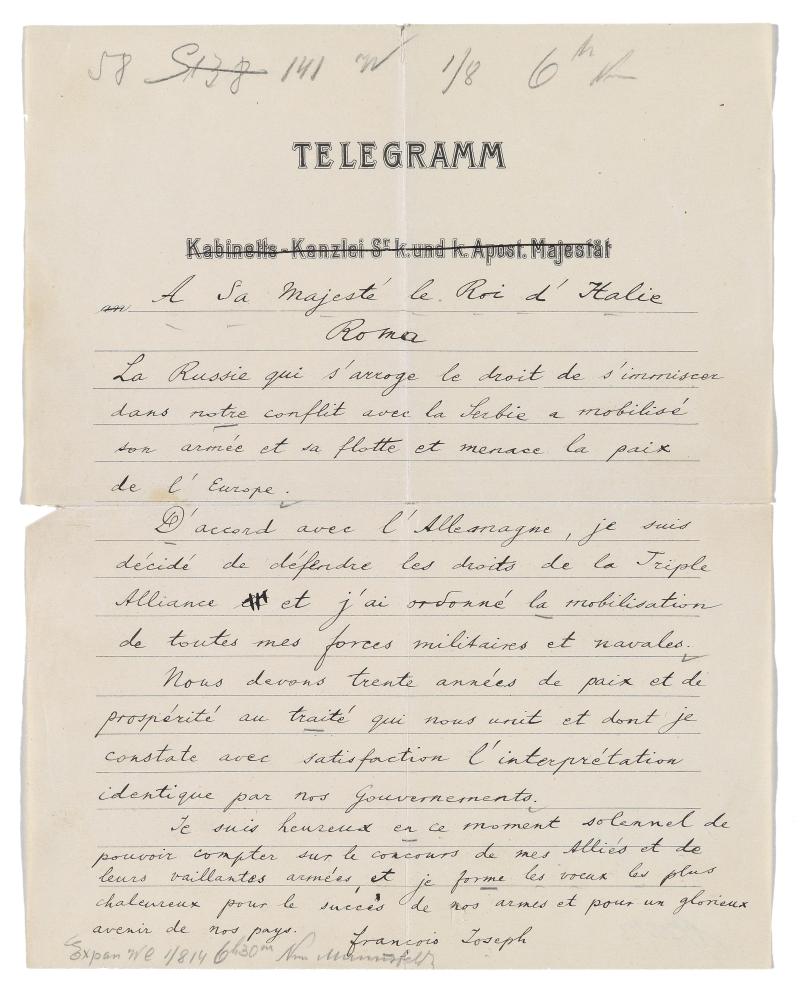 58 S138 141 W 1/8 6h Nm
TELEGRAMM
Kabinetts-Kanzlei Sr. k. und k. Apost. Majestät
an A Sa Majesté le Roi d'Italie
Roma
La Russie qui s'arroge le droit de s'immiscer
dans notre conflit avec la Serbie a mobilisé
son armée et sa flotte et menace la paix
de l'Europe.
D'accord avec l'Allemagne, je suis
décidé de défendre les droits de la Triple
Alliance et j'ai ordonné la mobilisation
de toutes mes forces militaires et navales.
Nous devons trente années de paix et de
prospérité au traité qui nous unit et dont je
constate avec satisfaction l'interprétation
identique par nos Gouvernements.
Je suis heureux en ce moment solennel de
pouvoir compter sur le concours de mes Alliés et de
leurs vaillantes armées et je forme les voeux les plus
chaleureux pour le succès de nos armes et pour un glorieux
avenir de nos pays.
François Joseph
Expon We 1/8 14 6h30m Nm